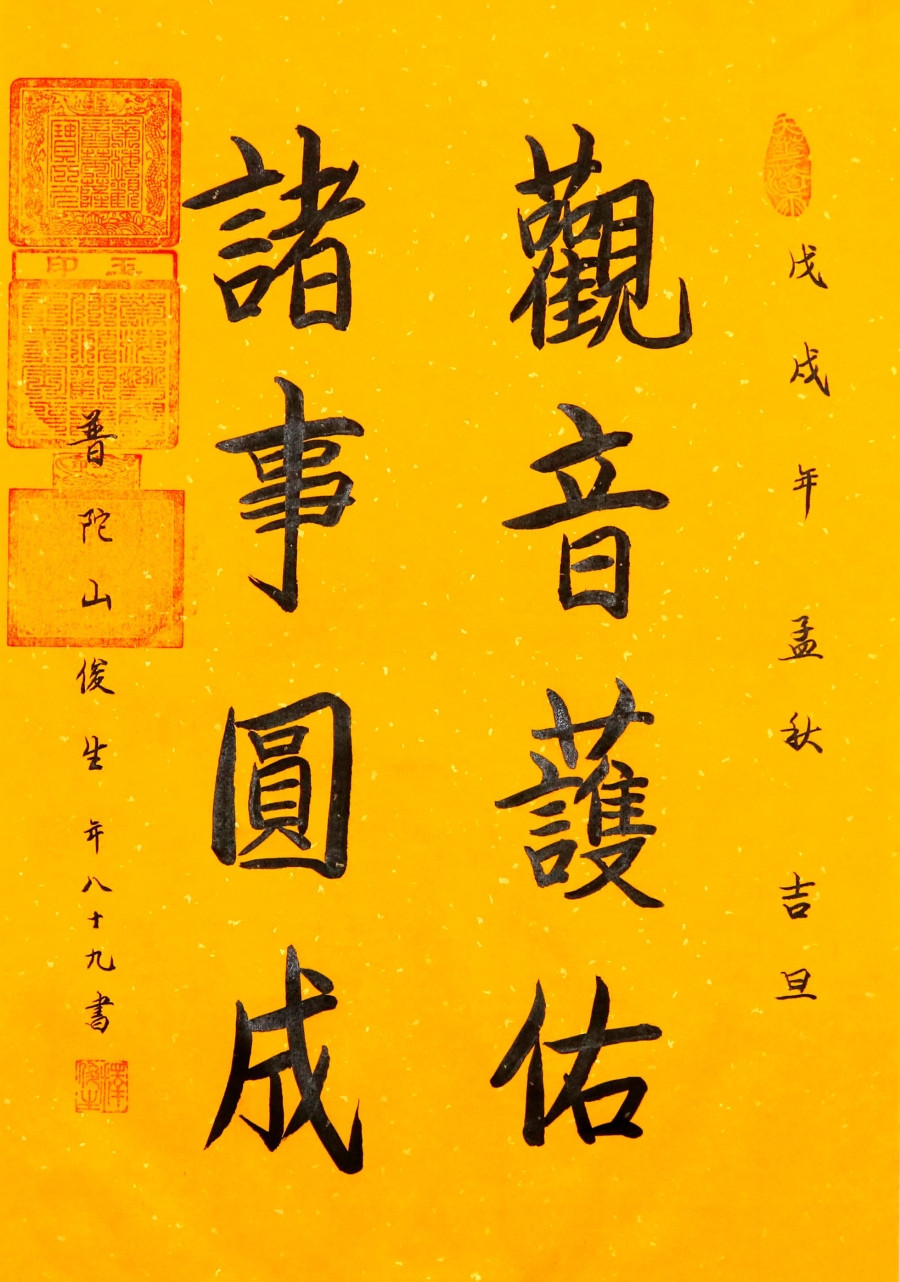 戊戌年孟秋 吉旦
觀音護佑
諸事圓成
普陀山俊生 年八十九書
玉印